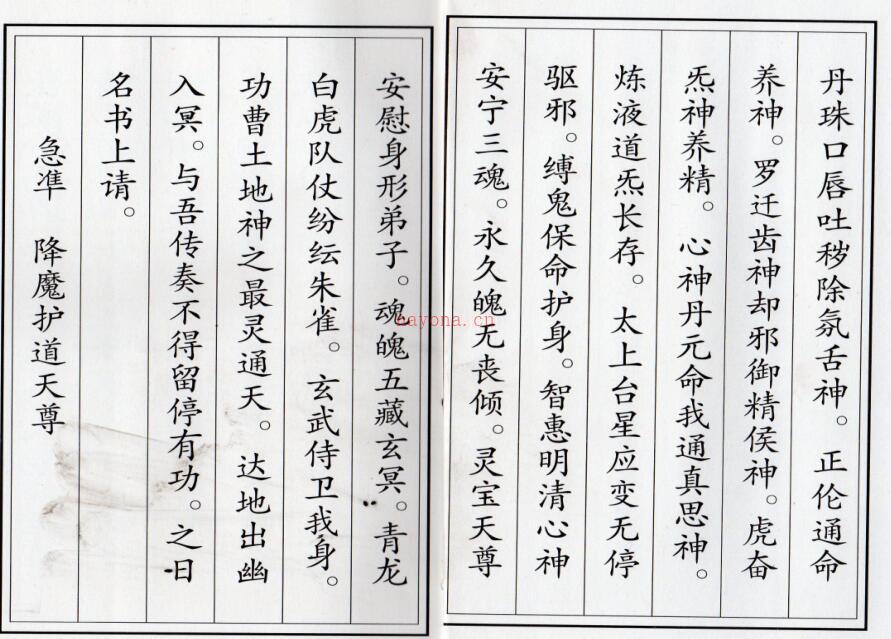 丹珠口唇吐秽除氛舌神。正伦通命
养神。罗迁齿神却邪御精侯神。虎奋
炁神养精。心神丹元命我通真思神。
炼液道炁长存。太上台星应变无停
驱邪。缚鬼保命护身。智惠明清心神
安宁三魂。永久魄无丧倾。灵宝天尊
安慰身形弟子。魂魄五藏玄冥。青龙
白虎队仗纷纭朱雀。玄武侍卫我身。
功曹土地神之最灵通天。达地出幽
入冥。与吾传奏不得留停有功。之日
名书上请。
急准 降魔护道天尊
nayona.cn